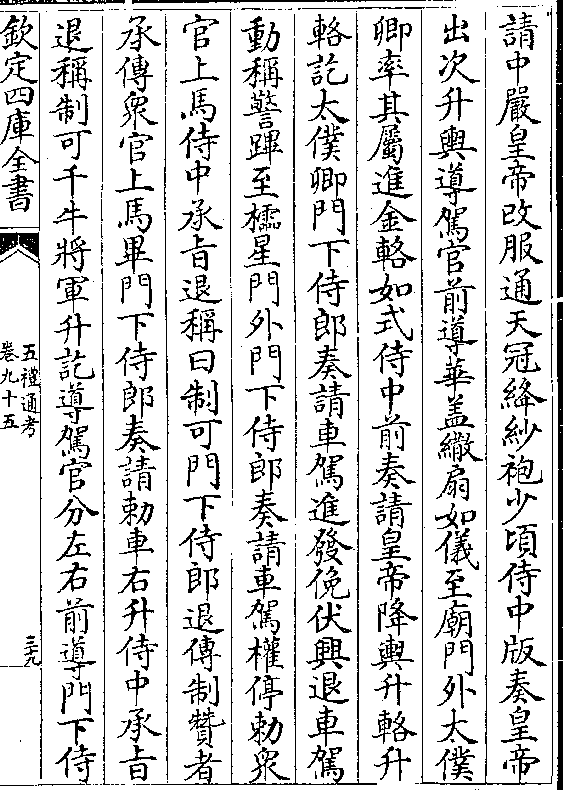 請中嚴皇帝改服通天冠絳紗袍少頃侍中版奏皇帝
出次升輿導駕官前導華盖繖扇如儀至廟門外太僕
卿率其屬進金輅如式侍中前奏請皇帝降輿升輅升
輅訖太僕卿門下侍郎奏請車駕進發俛伏興退車駕
動稱警蹕至櫺星門外門下侍郎奏請車駕權停勅衆
官上馬侍中承㫖退稱曰制可門下侍郎退傳制贊者
承傳衆官上馬畢門下侍郎奏請勅車右升侍中承㫖
退稱制可千牛將軍升訖導駕官分左右前導門下侍
欽定四庫全書
五禮通考
卷九十五
三九